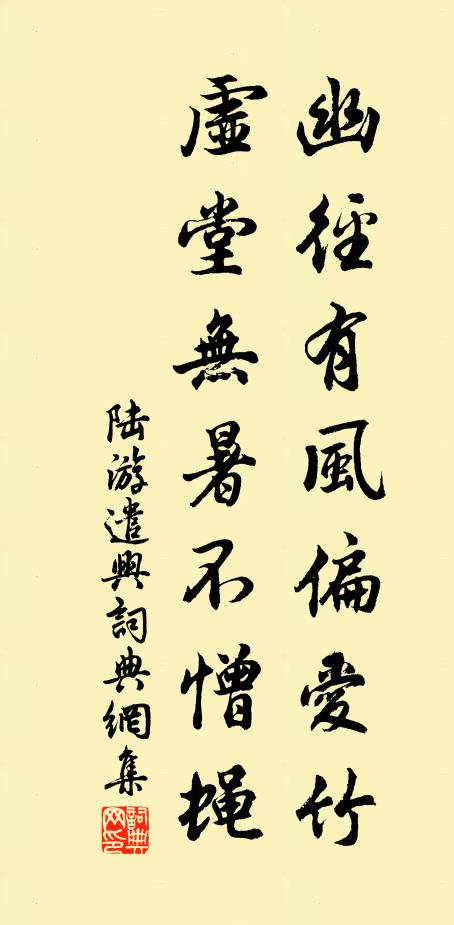 幽徑有風偏愛竹
虛堂無暑不憎蝇
陆游遣興詞典網集
詞典网印